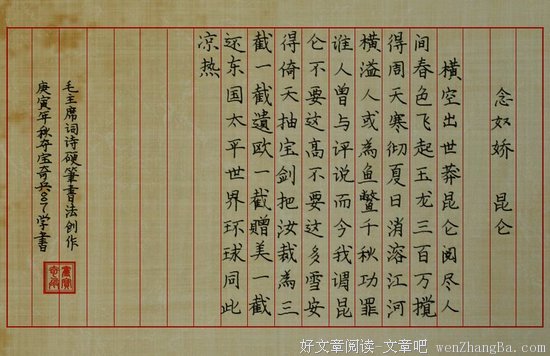 念奴娇 昆仑
横空出世莽昆仑阅尽人
间春色飞起玉龙三百万搅
得周天寒彻夏日消溶江河
横溢人或為鱼鳖千秋功罪
谁人曾与评说而今我谓昆
仑不要这高不要这多雪安
得倚天抽宝剑把汝裁為三
截一截遗欧一截赠美一截
还东国太平世界环球同此
凉热
毛主席词诗硬筆書法创作
庚寅年秋夺宝奇兵学書
好文章阅读-文章吧 wenZhangBa.com